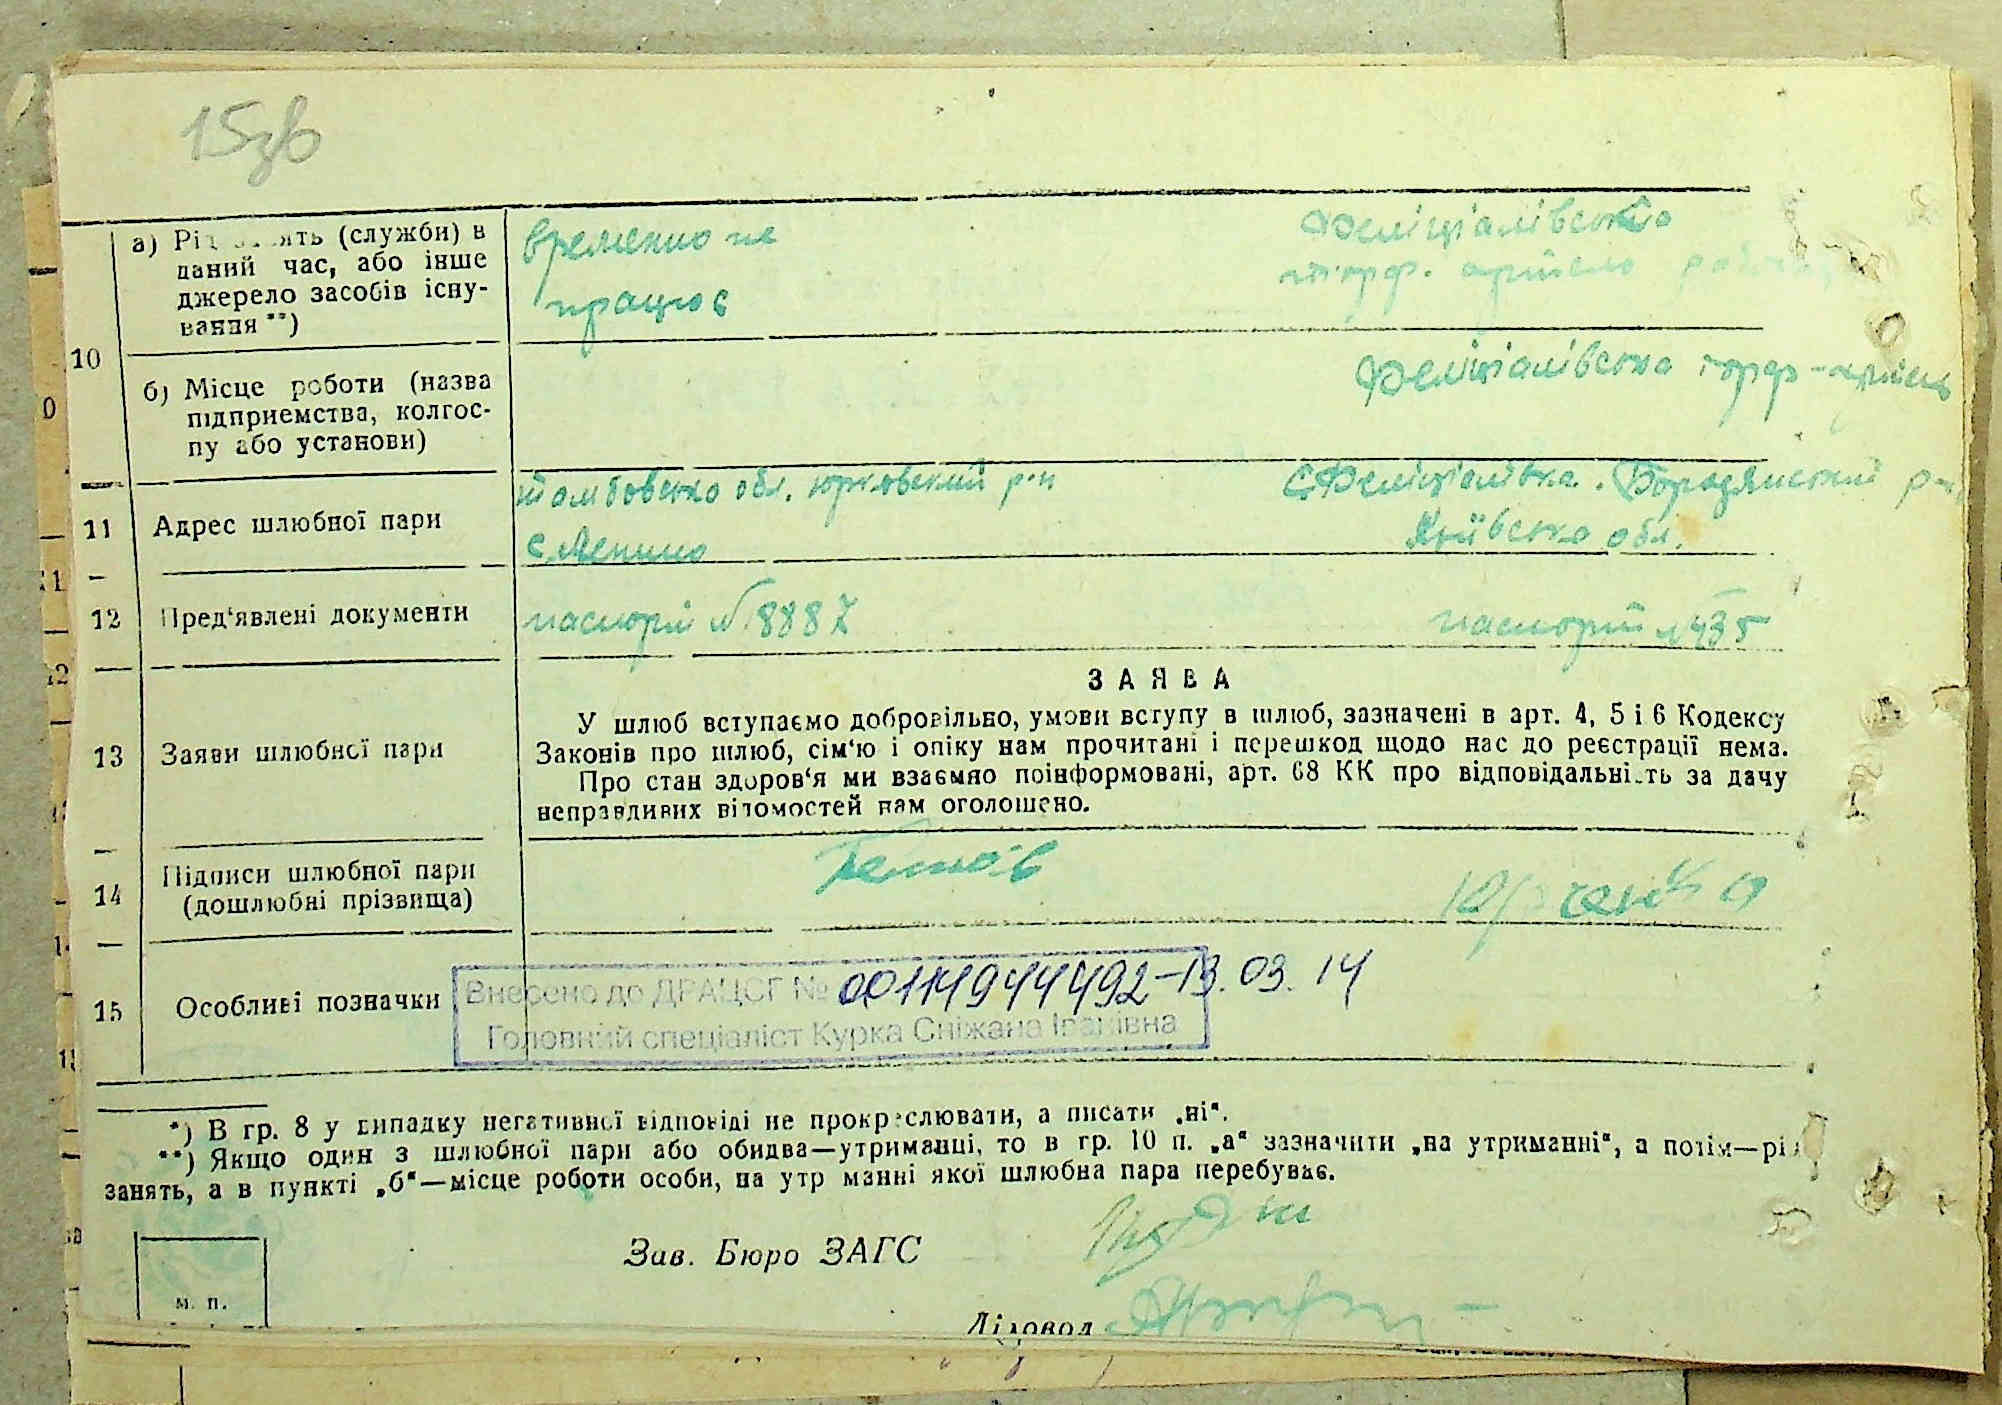 15зв
а) Рід занять (служби) в
даний час, або інше
джерело засобів існу-
вання **)
временно не
працює
Феліціалівсько
торф. артель
10
б) Місце роботи (назва
підприємства, колгос-
пу або установи)
Феліціалівська торф-артель
11
Адрес шлюбної пари
Тамбовсько обл. юрловский р-н
с Ленино
с Феліціалівка. Бородянський р-н
Київсько обл.
12
Пред'явлені документи
паспорт № 8887
паспорт № 435
13
Заяви шлюбної пари
ЗАЯВА
У шлюб вступаємо добровільно, умови вступу в шлюб, зазначені в арт. 4, 5 і 6 Кодексу
Законів про шлюб, сім'ю і опіку нам прочитані і перешкод щодо нас до реєстрації нема.
Про стан здоров'я ми взаємно поінформовані, арт. 68 КК про відповідальність за дачу
неправдивих відомостей нам оголошено.
14
Підписи шлюбної пари
(дошлюбні прізвища)
15
Особливі позначки
Внесено до ДРАЦСГ № 00114944492-13.03.14
Головний спеціаліст Курка Сніжана Іванівна
*) В гр. 8 у випадку негативної відповіді не прокреслювати, а писати „ні“.
**) Якщо один з шлюбної пари або обидва—утриманці, то в гр. 10 п. „а“ зазначити „на утриманні“, а потім—рід
занять, а в пункті „б“—місце роботи особи, на утриманні якої шлюбна пара перебуває.
Зав. Бюро ЗАГС
м. п.
Діловод